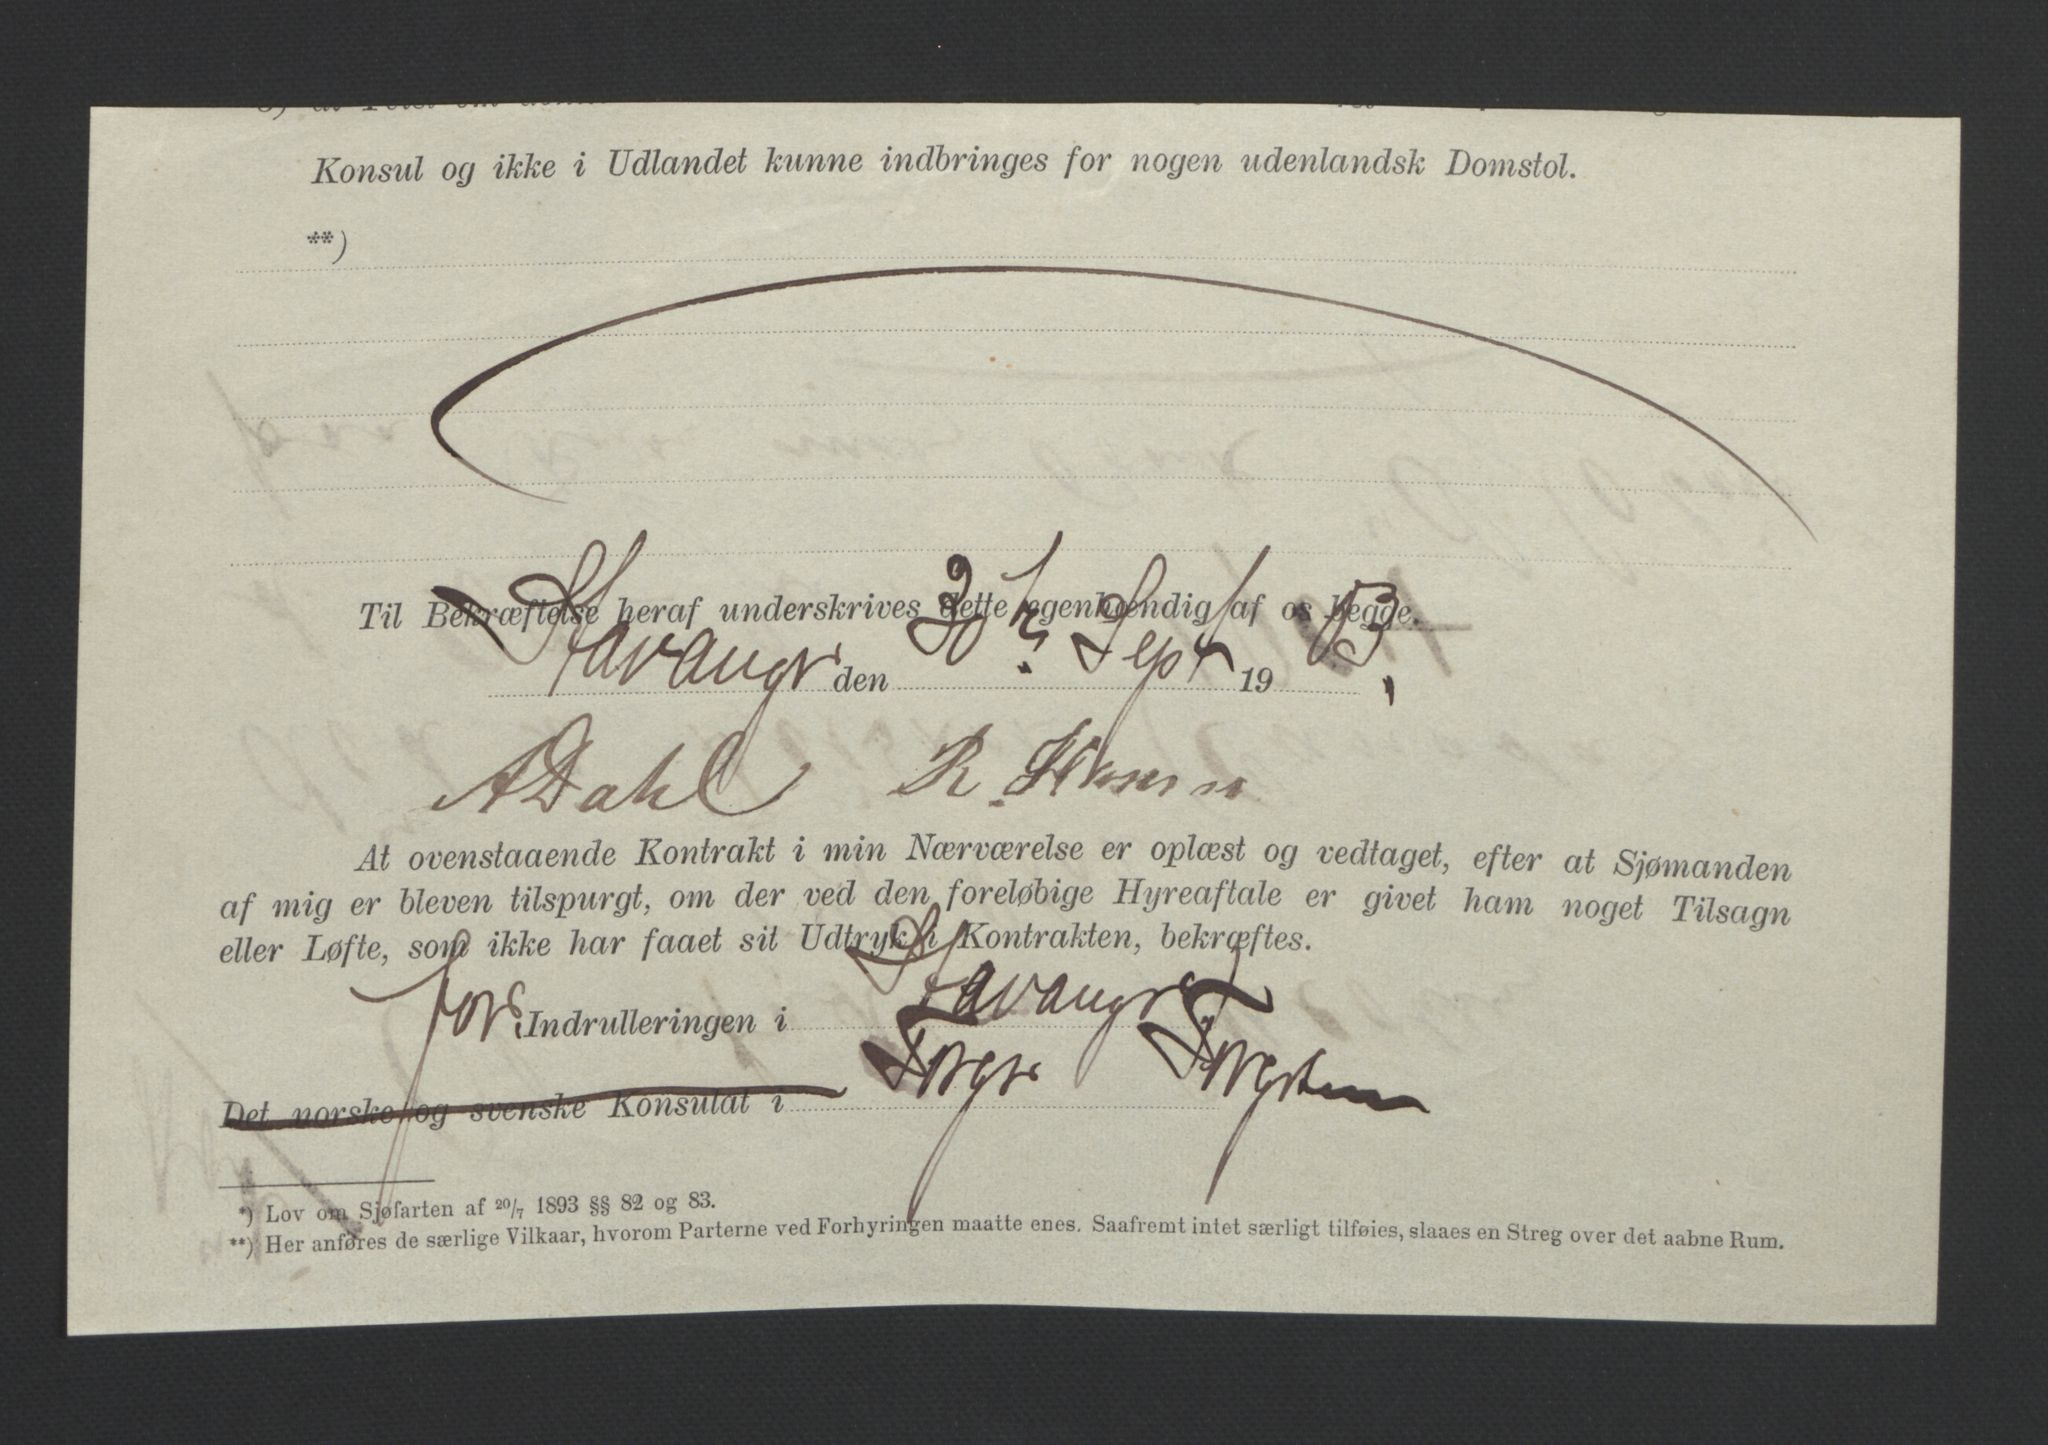 Konsul og ikke i Udlandet kunne indbringes for nogen udenlandsk Domstol.
**)
Til Bekræftelse heraf underskrives dette egenhændig af os begge.
Stavanger den Sept 19 03.
ADahl R. Hansen
At ovenstaaende Kontrakt i min Nærværelse er oplæst og vedtaget, efter at Sjømanden
af mig er bleven tilspurgt, om der ved den foreløbige Hyreaftale er givet ham noget Tilsagn
eller Løfte, som ikke har faaet sit Udtryk i Kontrakten, bekræftes.
for Indrulleringen i Stavanger
Det norske og svenske Konsulat i
*) Lov om Sjøfarten af 20/7 1893 §§ 82 og 83.
**) Her anføres de særlige Vilkaar, hvorom Parterne ved Forhyringen maatte enes. Saafremt intet særligt tilføies, slaaes en Streg over det aabne Rum.